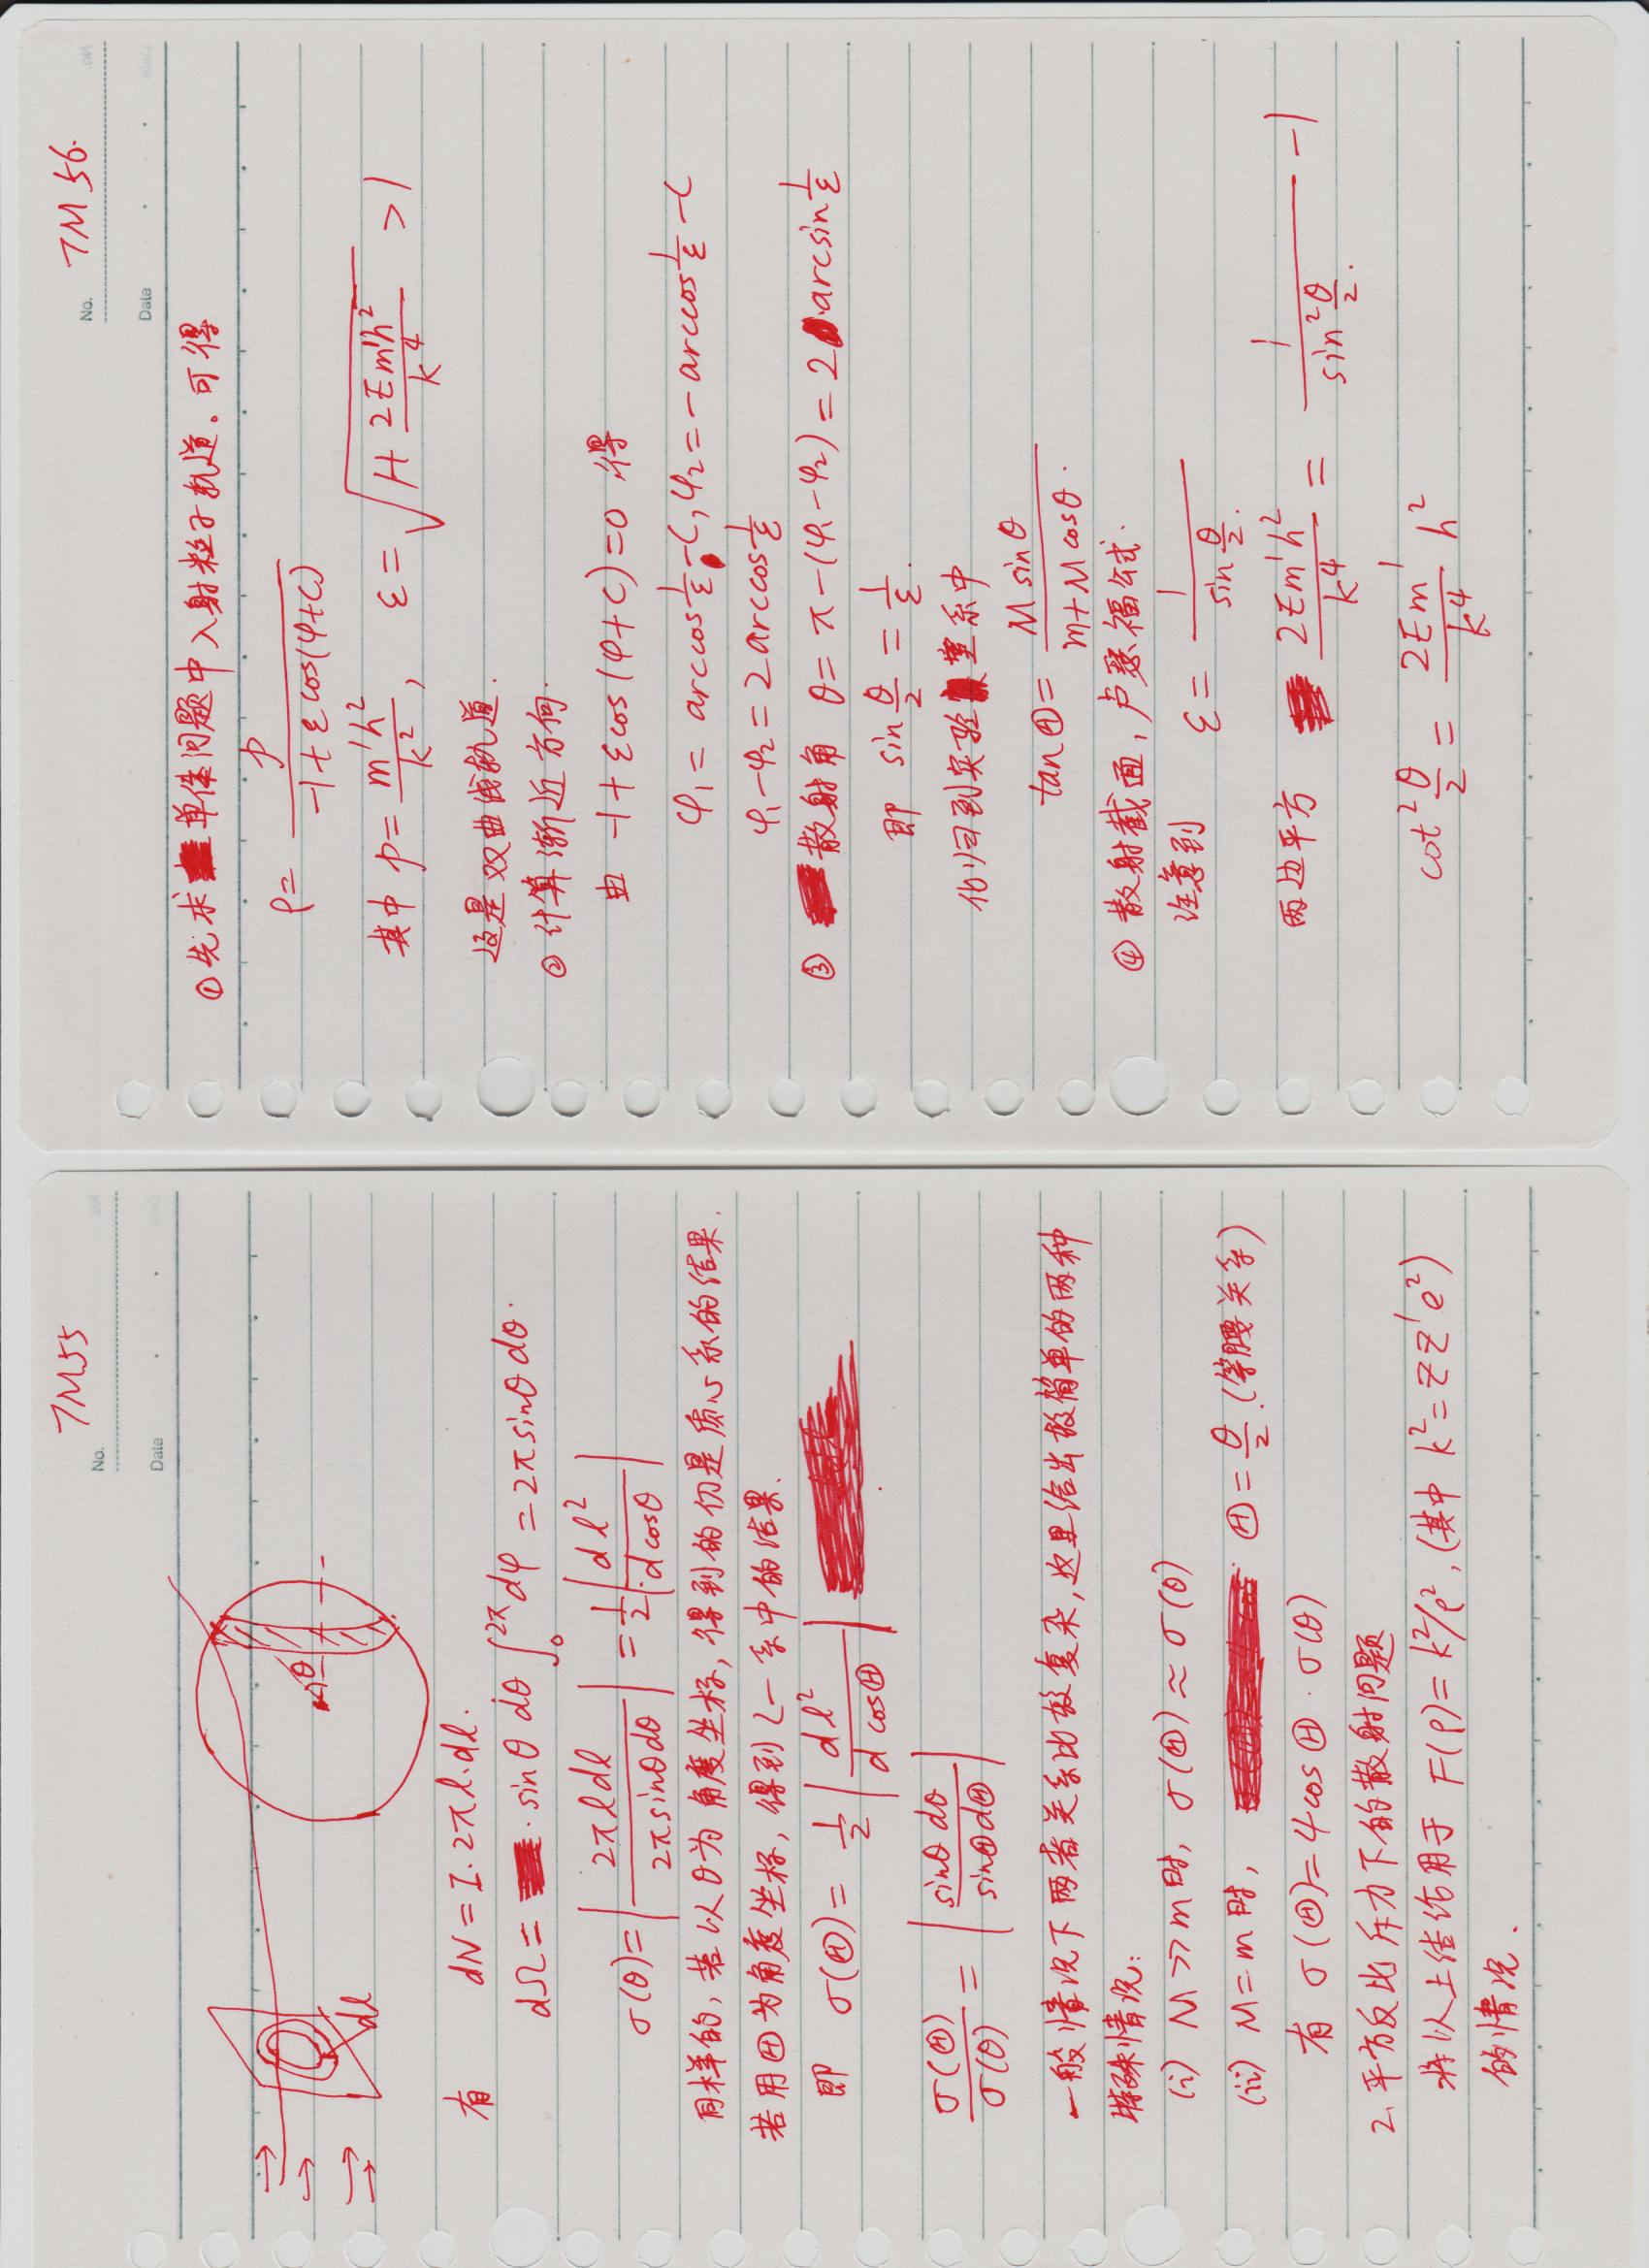 TM55
No.
Date
θ
dl
有 dN = I·2πl·dl.
dΩ = · sinθ dθ ∫₀^{2π} dφ = 2π sinθ dθ.
σ(θ) = |2πldl / 2πsinθdθ| = 1/2 |dl² / d cosθ|
同样的, 若以θ为角度坐标, 得到的仍是质心系的结果.
若用Θ为角度坐标, 得到L-系中的结果.
即 σ(Θ) = 1/2 |dl² / d cosΘ|
σ(Θ)/σ(θ) = |sinθ dθ / sinΘ dΘ|
一般情况下两者关系比较复杂, 这里给出较简单的两种
特殊情况:
(i) M>>m时, σ(Θ) ≈ σ(θ)
(ii) M=m时, Θ = θ/2. (等腰关系)
有 σ(Θ) = 4cosΘ · σ(θ)
2. 平方反比斥力下的散射问题
将以上结论用于 F(ρ) = k²/ρ², (其中 k² = ZZ'e²)
的情况.
TM56.
No.
Date
①先求单体问题中入射粒子轨道。可得
ρ = p / (-1+εcos(φ+C))
其中 p = m'h²/k², ε = √(1+ 2Em'h²/k⁴) >1
这是双曲线轨道.
② 计算渐近方向.
由 -1+εcos(φ+C)=0 得
φ₁ = arccos 1/ε - C, φ₂ = -arccos 1/ε - C
φ₁-φ₂ = 2arccos 1/ε
③ 散射角 θ = π-(φ₁-φ₂) = 2·arcsin 1/ε
即 sin θ/2 = 1/ε.
化归到实验室系中
tanΘ = M sinθ / (m+M cosθ).
④ 散射截面, 卢瑟福公式.
注意到 ε = 1 / sin θ/2.
两边平方 2Em'h²/k⁴ = 1/sin² θ/2. -1
cot² θ/2 = 2Em'/k⁴ h²